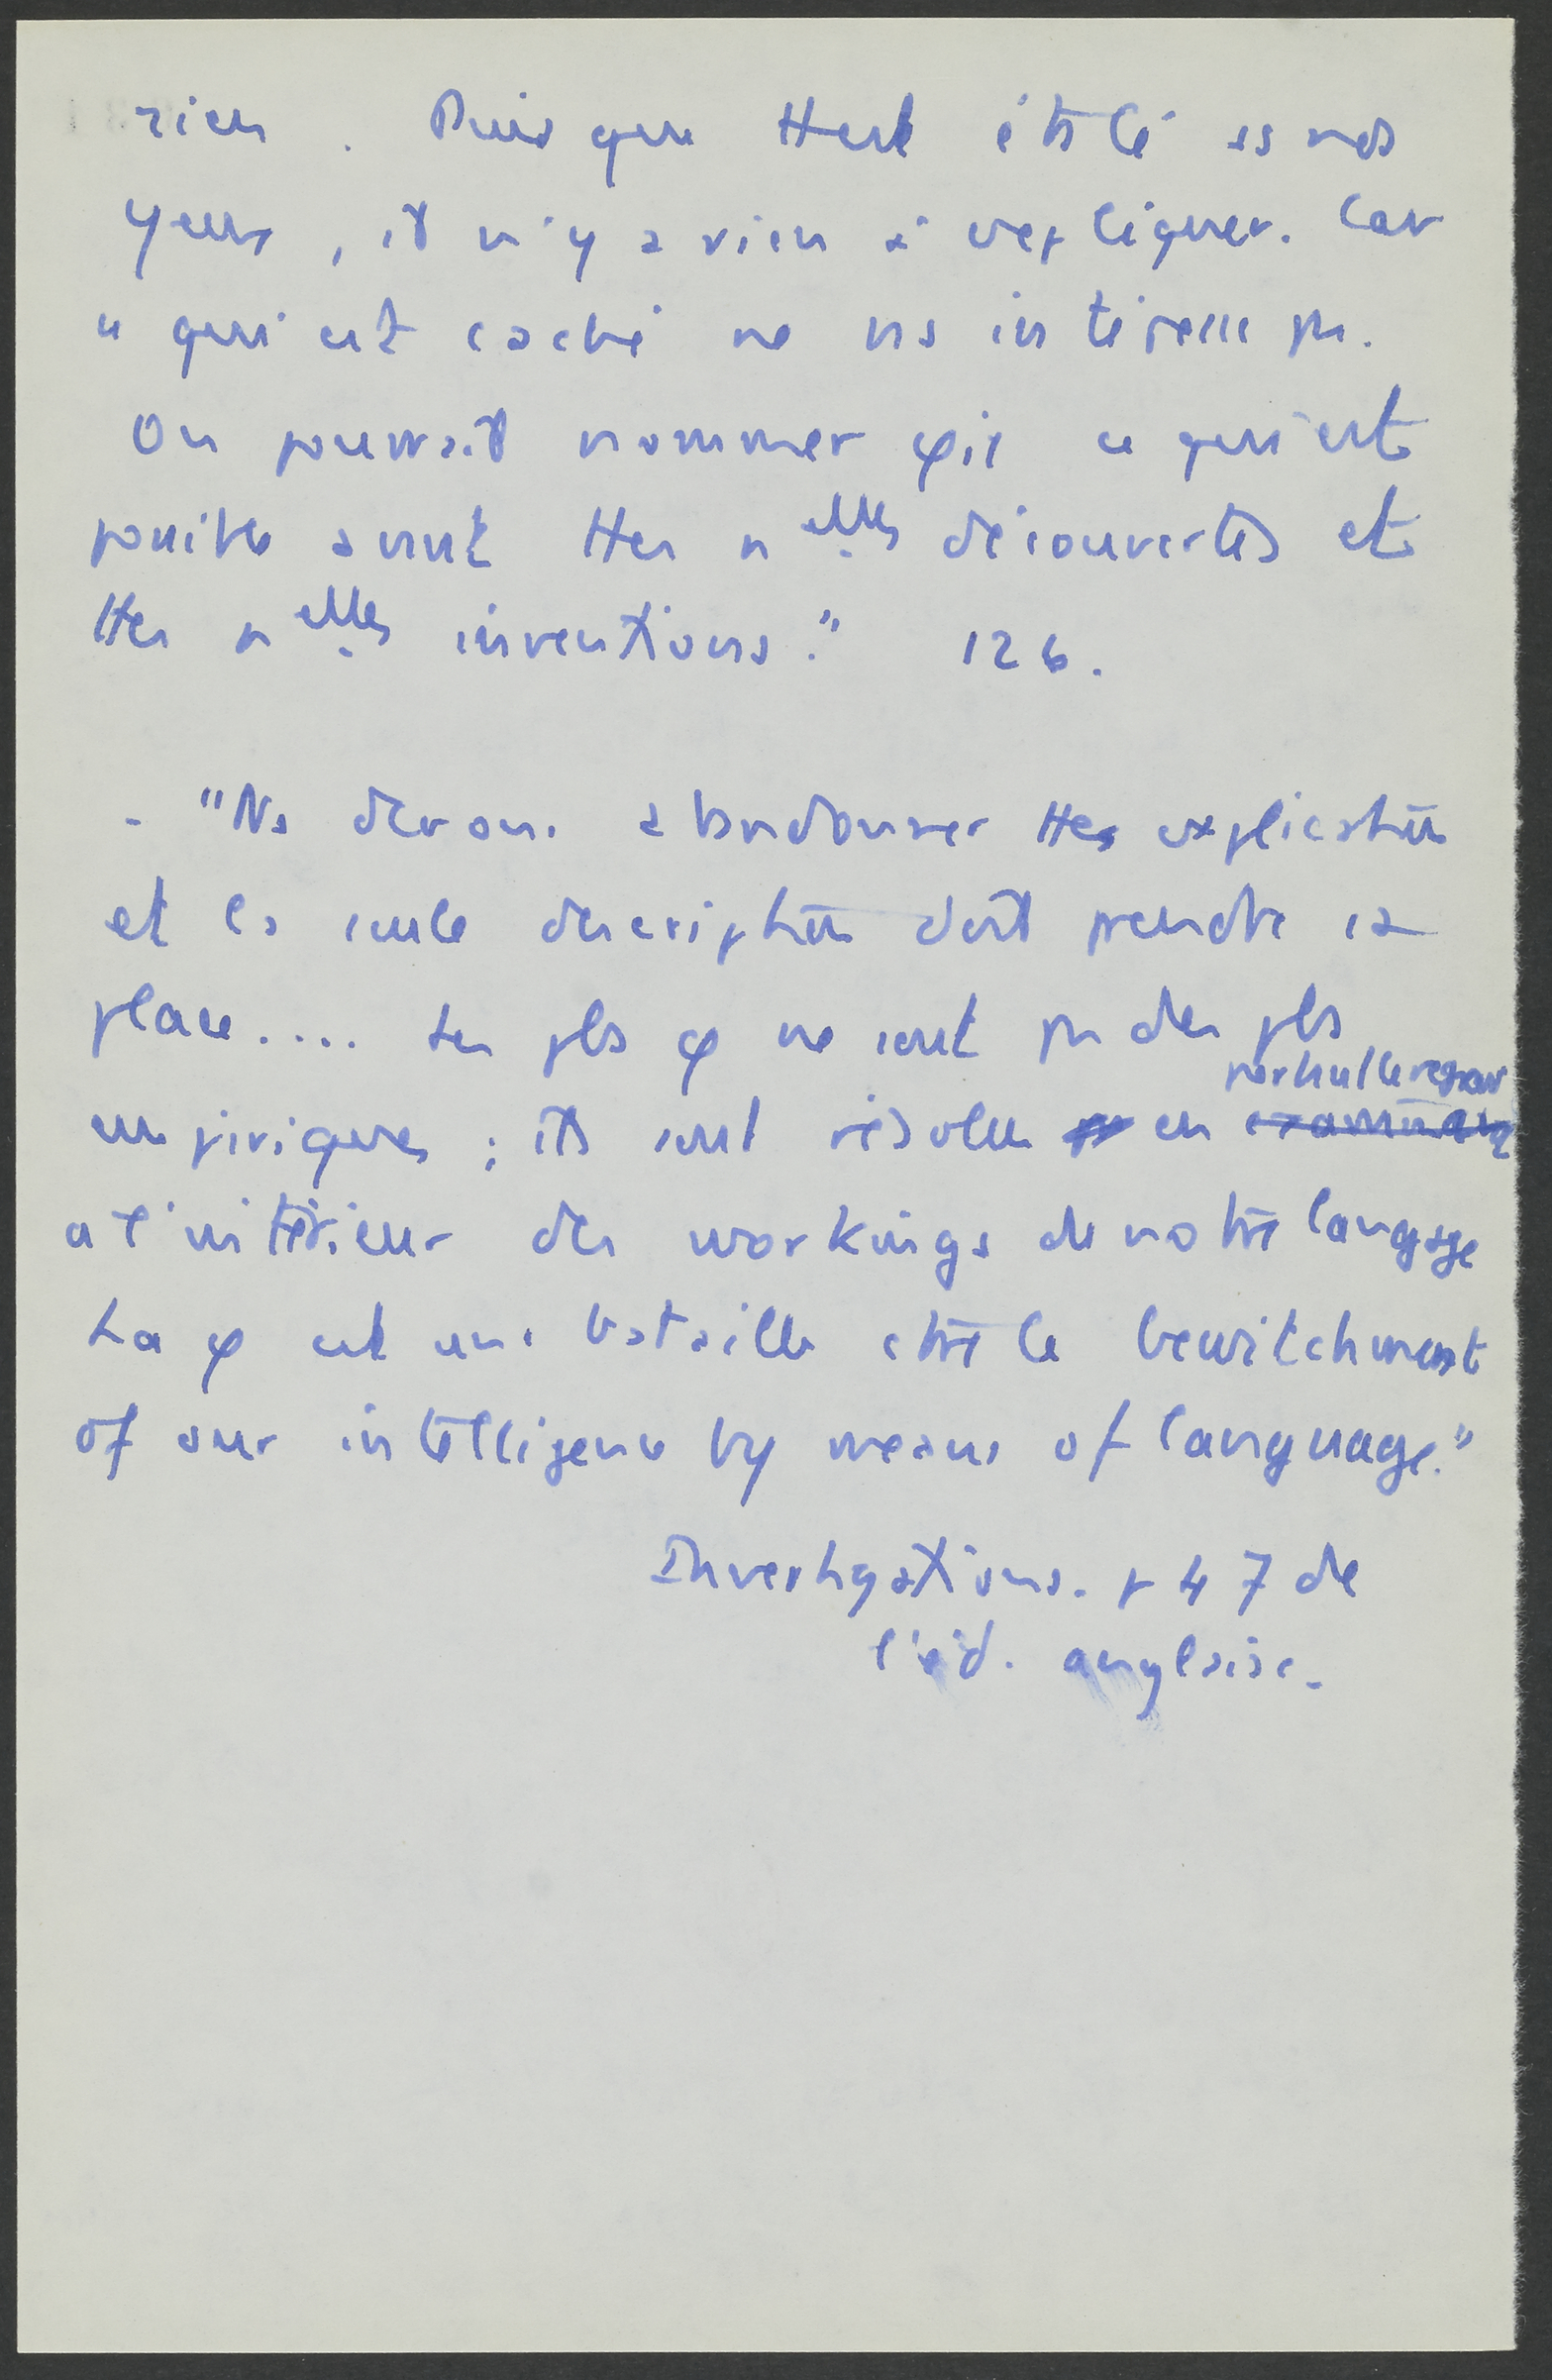 rien. Puisque tt est étalé ss nos
yeux, il n'y a rien à expliquer. Car
ce qui est caché ne ns intéresse pas.
On pourrait nommer φie ce qui est
possible avant ttes nelles découvertes et
ttes nelles inventions." 126.
- "Ns devons abandonner tte explication
et la seule description doit prendre sa
place.... Les pbs φ ne sont pas des pbs
empiriques ; ils sont résolus en
a l'intérieur des workings de notre langage
La φ est une bataille ctre le bewitchment
of our intelligence by means of language."
Investigations. p 47 de
l'éd. anglaise.